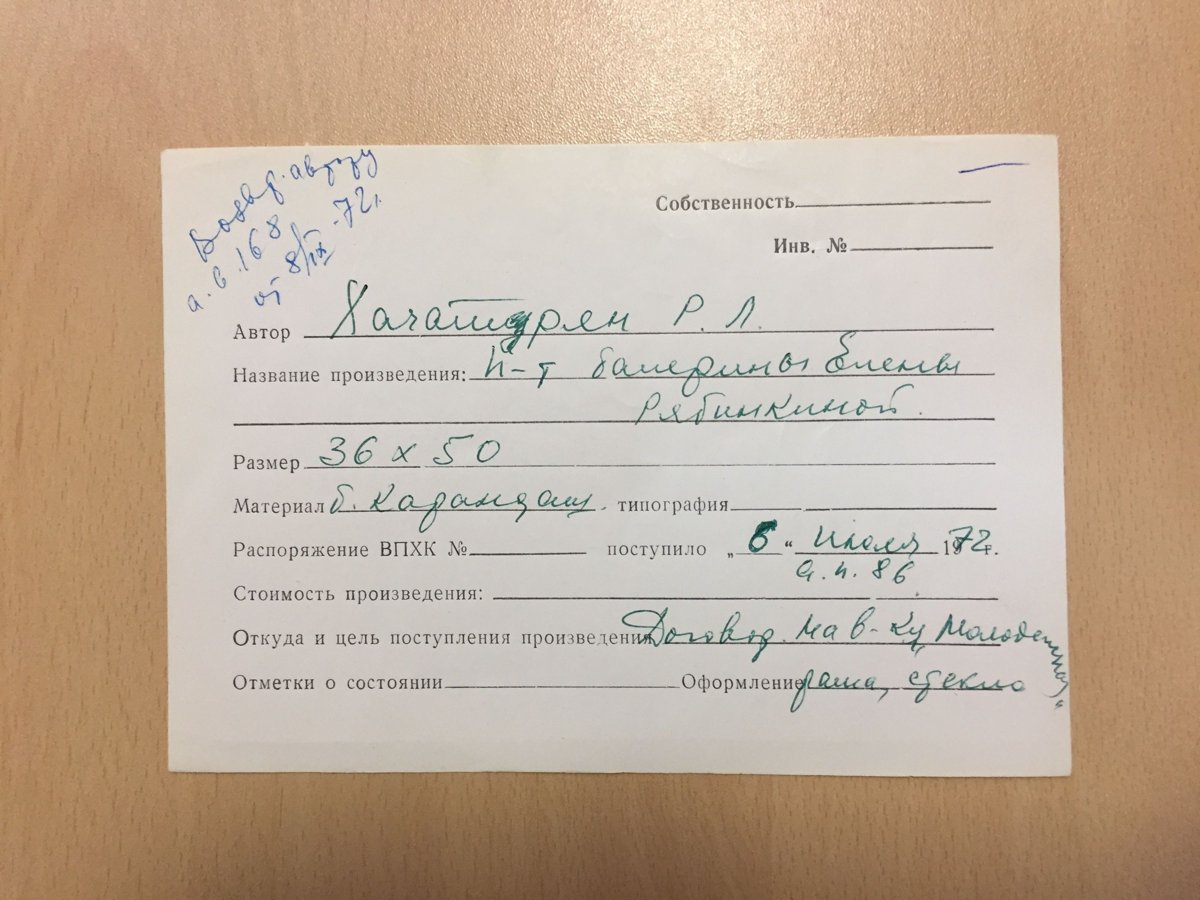 Возвр. автору
а. в. 168
от 8/IX-72г.
Собственность
Инв. №
Автор Хачатурян Р. Л.
Название произведения: П-т балерины Елены
Рябинкиной.
Размер 36 х 50
Материал б. карандаш. типография
Распоряжение ВПХК № поступило „6“ июля 1972г.
а. п. 86
Стоимость произведения:
Откуда и цель поступления произведения Договор. на в-ку Молодежная"
Отметки о состоянии Оформление рама, стекло